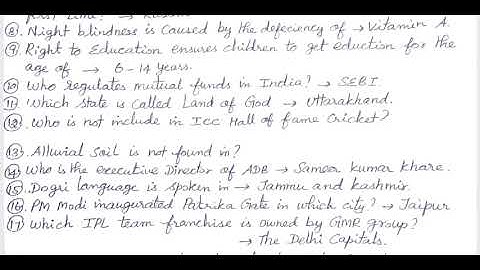 first time? → Russia
⑧. Night blindness is caused by the defeciency of → Vitamin A.
⑨. Right to Education ensures children to get eduction for the
age of → 6-14 years.
⑩. Who regulates mutual funds in India? → SEBI.
⑪. Which state is called Land of God → Uttarakhand.
⑫. Who is not include in ICC Hall of fame Cricket?
⑬. Alluvial Soil is not found in?
⑭. Who is the executive Director of ADB → Sameer kumar khare.
⑮. Dogri language is spoken in → Jammu and kashmir.
⑯. PM Modi inaugurated Patrika Gate in which city? → Jaipur
⑰. Which IPL team franchise is owned by GMR group?
→ The Delhi Capitals.